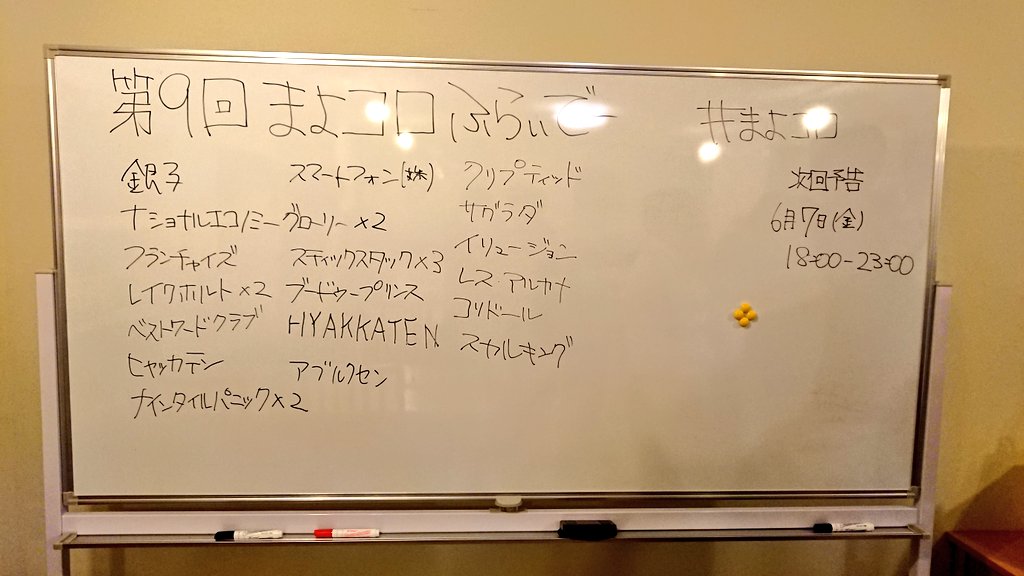 第9回 まよコロ ふらいでー
#まよコロ
銀子
ナショナルエコノミーグローリー×2
フランチャイズ
レイクホルト×2
ベストワードクラブ
ヒャッカテン
ナインタイルパニック×2
スマートフォン(株)
スティックスタック×3
ブードゥープリンス
HYAKKATEN
アブルクセン
クリプティッド
サグラダ
イリュージョン
レス・アルカナ
コリドール
スカルキング
次回予告
6月7日(金)
18:00-23:00